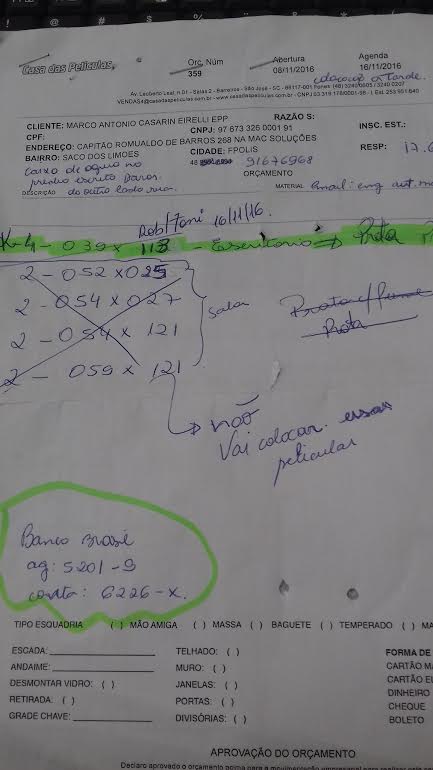 @ # $ % * (
Casa das Películas
Orç. Núm
359
Abertura
08/11/2016
Agenda
16/11/2016
colocação a tarde.
Av. Leoberto Leal, n.01 - Salas 2 - Barreiros - São José - SC - 88117-001 Fones (48) 3240/0605 / 3240 0207
VENDAS4@casadaspeliculas.com.br - www.casadaspeliculas.com.br - CNPJ 03.319.178/0001-98 - I. Est. 253.951.640
CLIENTE: MARCO ANTONIO CASARIN EIRELLI EPP
RAZÃO S:
CPF: CNPJ: 97 673 326 0001 91
INSC. EST.:
ENDEREÇO: CAPITÃO ROMUALDO DE BARROS 268 NA MAC SOLUÇÕES
BAIRRO: SACO DOS LIMOES CIDADE: FPOLIS
RESP: 17.6
caixa de agua no 48 91676968
prédio escrito Daros. ORÇAMENTO
DESCRIÇÃO do outro lado rua. MATERIAL Email: eng
Rob/Toni 16/11/16.
K-4 - 039 x 113 - Escritorio => Prata
2 - 052 x 025
2 - 054 x 027
2 - 054 x 121
2 - 059 x 121
Sala
Prata
não
Vai colocar essas
peliculas
Banco Brasil
ag: 5201-9
conta: 6226-X.
TIPO ESQUADRIA ( ) MÃO AMIGA ( ) MASSA ( ) BAGUETE ( ) TEMPERADO ( ) MA
ESCADA: TELHADO: ( ) FORMA DE
ANDAIME: MURO: ( ) CARTÃO MA
DESMONTAR VIDRO: ( ) JANELAS: ( ) CARTÃO EL
RETIRADA: ( ) PORTAS: ( ) DINHEIRO
GRADE CHAVE: DIVISÓRIAS: ( ) CHEQUE
BOLETO
APROVAÇÃO DO ORÇAMENTO
Declaro aprovado o orçamento acima para a movimentação